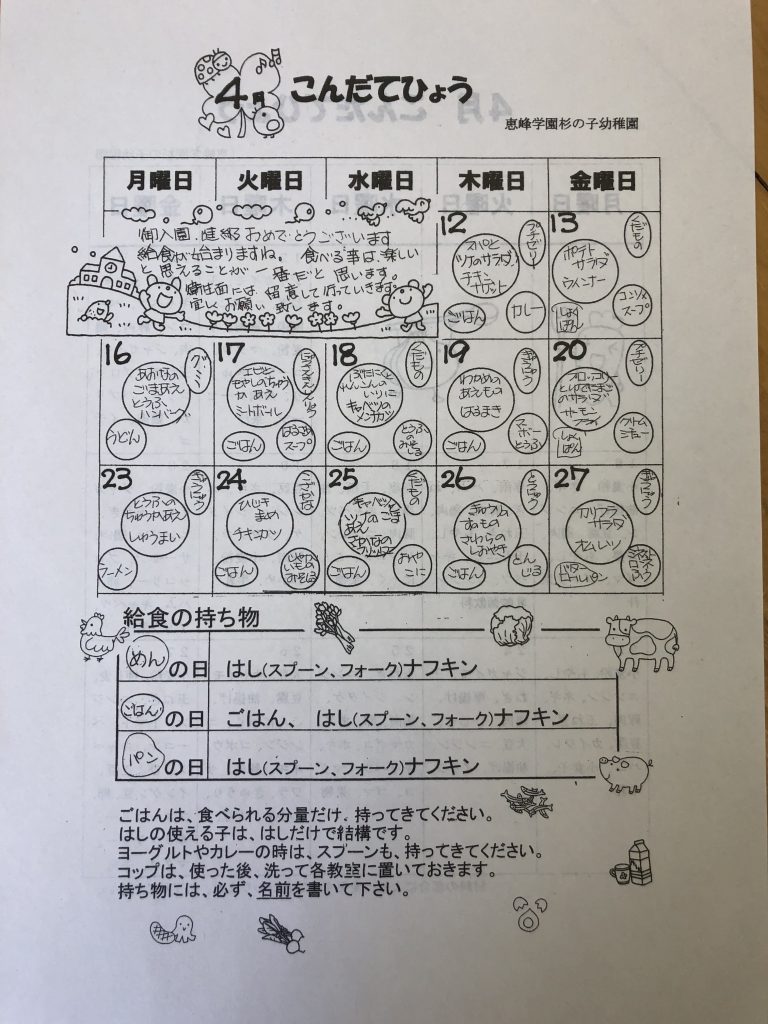 4月 こんだてひょう
恵峰学園杉の子幼稚園
月曜日 火曜日 水曜日 木曜日 金曜日
御入園、進級おめでとうございます
給食が始まりますね。食べる事は、楽しい
と思えることが一番だと思います。
衛生面には、留意して行っていきます。
宜しくお願い致します。
12
プチゼリー
スパと
ツナのサラダ
チキン
ナゲット
ごはん
カレー
13
くだもの
ポテト
サラダ
ウィンナー
しょく
ぱん
コンソメ
スープ
16
グミ
あおなの
ごまあえ
とうふ
ハンバーグ
うどん
17
エビと
もやしのちゅう
かあえ
ミートボール
ごはん
はるさめ
スープ
18
くだもの
ぶたにくと
れんこんの
いりに
キャベツの
メンチカツ
ごはん
とうふ
のみそ
しる
19
ぎゅうにゅう
わかめの
あえもの
はるまき
ごはん
マーボー
とうふ
20
プチゼリー
ブロッコリー
とゆでたまご
のサラダ
サーモン
フライ
しょく
ぱん
クリーム
シチュー
23
ぎゅうにゅう
とうふの
ちゅうかあえ
しゅうまい
ラーメン
24
こざかな
ひじき
まめ
チキンカツ
ごはん
じゃが
いもの
みそしる
25
くだもの
キャベツと
ツナのごま
あえ
さかなの
ごはん
おやこに
26
とうにゅう
きゅうりの
すのもの
さわらの
しおやき
ごはん
とんじる
27
ぎゅうにゅう
カリフラ
サラダ
オムレツ
バター
ロールパン
給食の持ち物
めんの日 はし(スプーン、フォーク)ナフキン
ごはんの日 ごはん、 はし(スプーン、フォーク)ナフキン
パンの日 はし(スプーン、フォーク)ナフキン
ごはんは、食べられる分量だけ、持ってきてください。
はしの使える子は、はしだけで結構です。
ヨーグルトやカレーの時は、スプーンも、持ってきてください。
コップは、使った後、洗って各教室に置いておきます。
持ち物には、必ず、名前を書いて下さい。